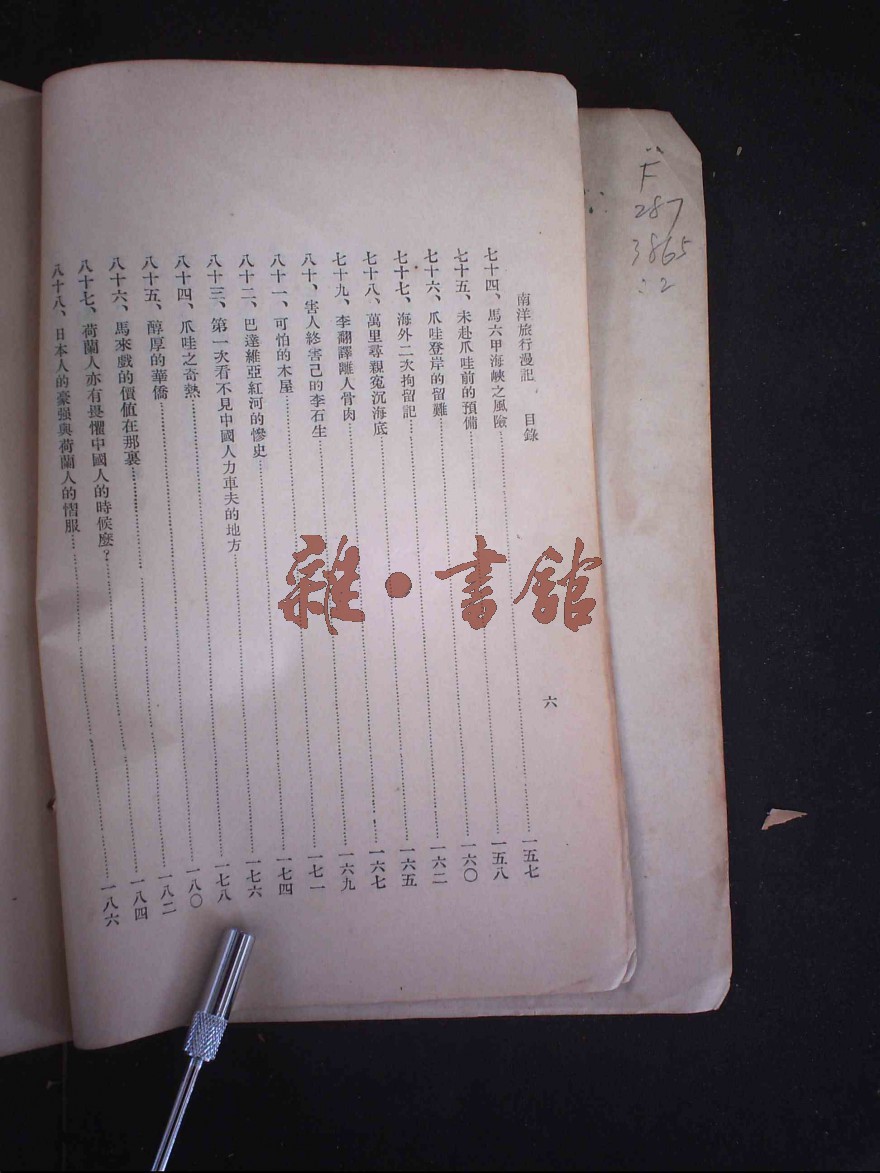 南洋旅行漫記　目錄　六
七十四、馬六甲海峽之風險……一五七
七十五、未赴爪哇前的預備……一五八
七十六、爪哇登岸的留難……一六〇
七十七、海外二次拘留記……一六二
七十八、萬里尋親冤沉海底……一六五
七十九、李翻譯離人骨肉……一六七
八十、害人終害己的李石生……一六九
八十一、可怕的木屋……一七一
八十二、巴達維亞紅河的慘史……一七四
八十三、第一次看不見中國人力車夫的地方……一七六
八十四、爪哇之奇熱……一七八
八十五、醇厚的華僑……一八〇
八十六、馬來戲的價值在那裏……一八二
八十七、荷蘭人亦有畏懼中國人的時候麼？……一八四
八十八、日本人的豪强與荷蘭人的慴服……一八六
F
287
3865
:2
雜·書館